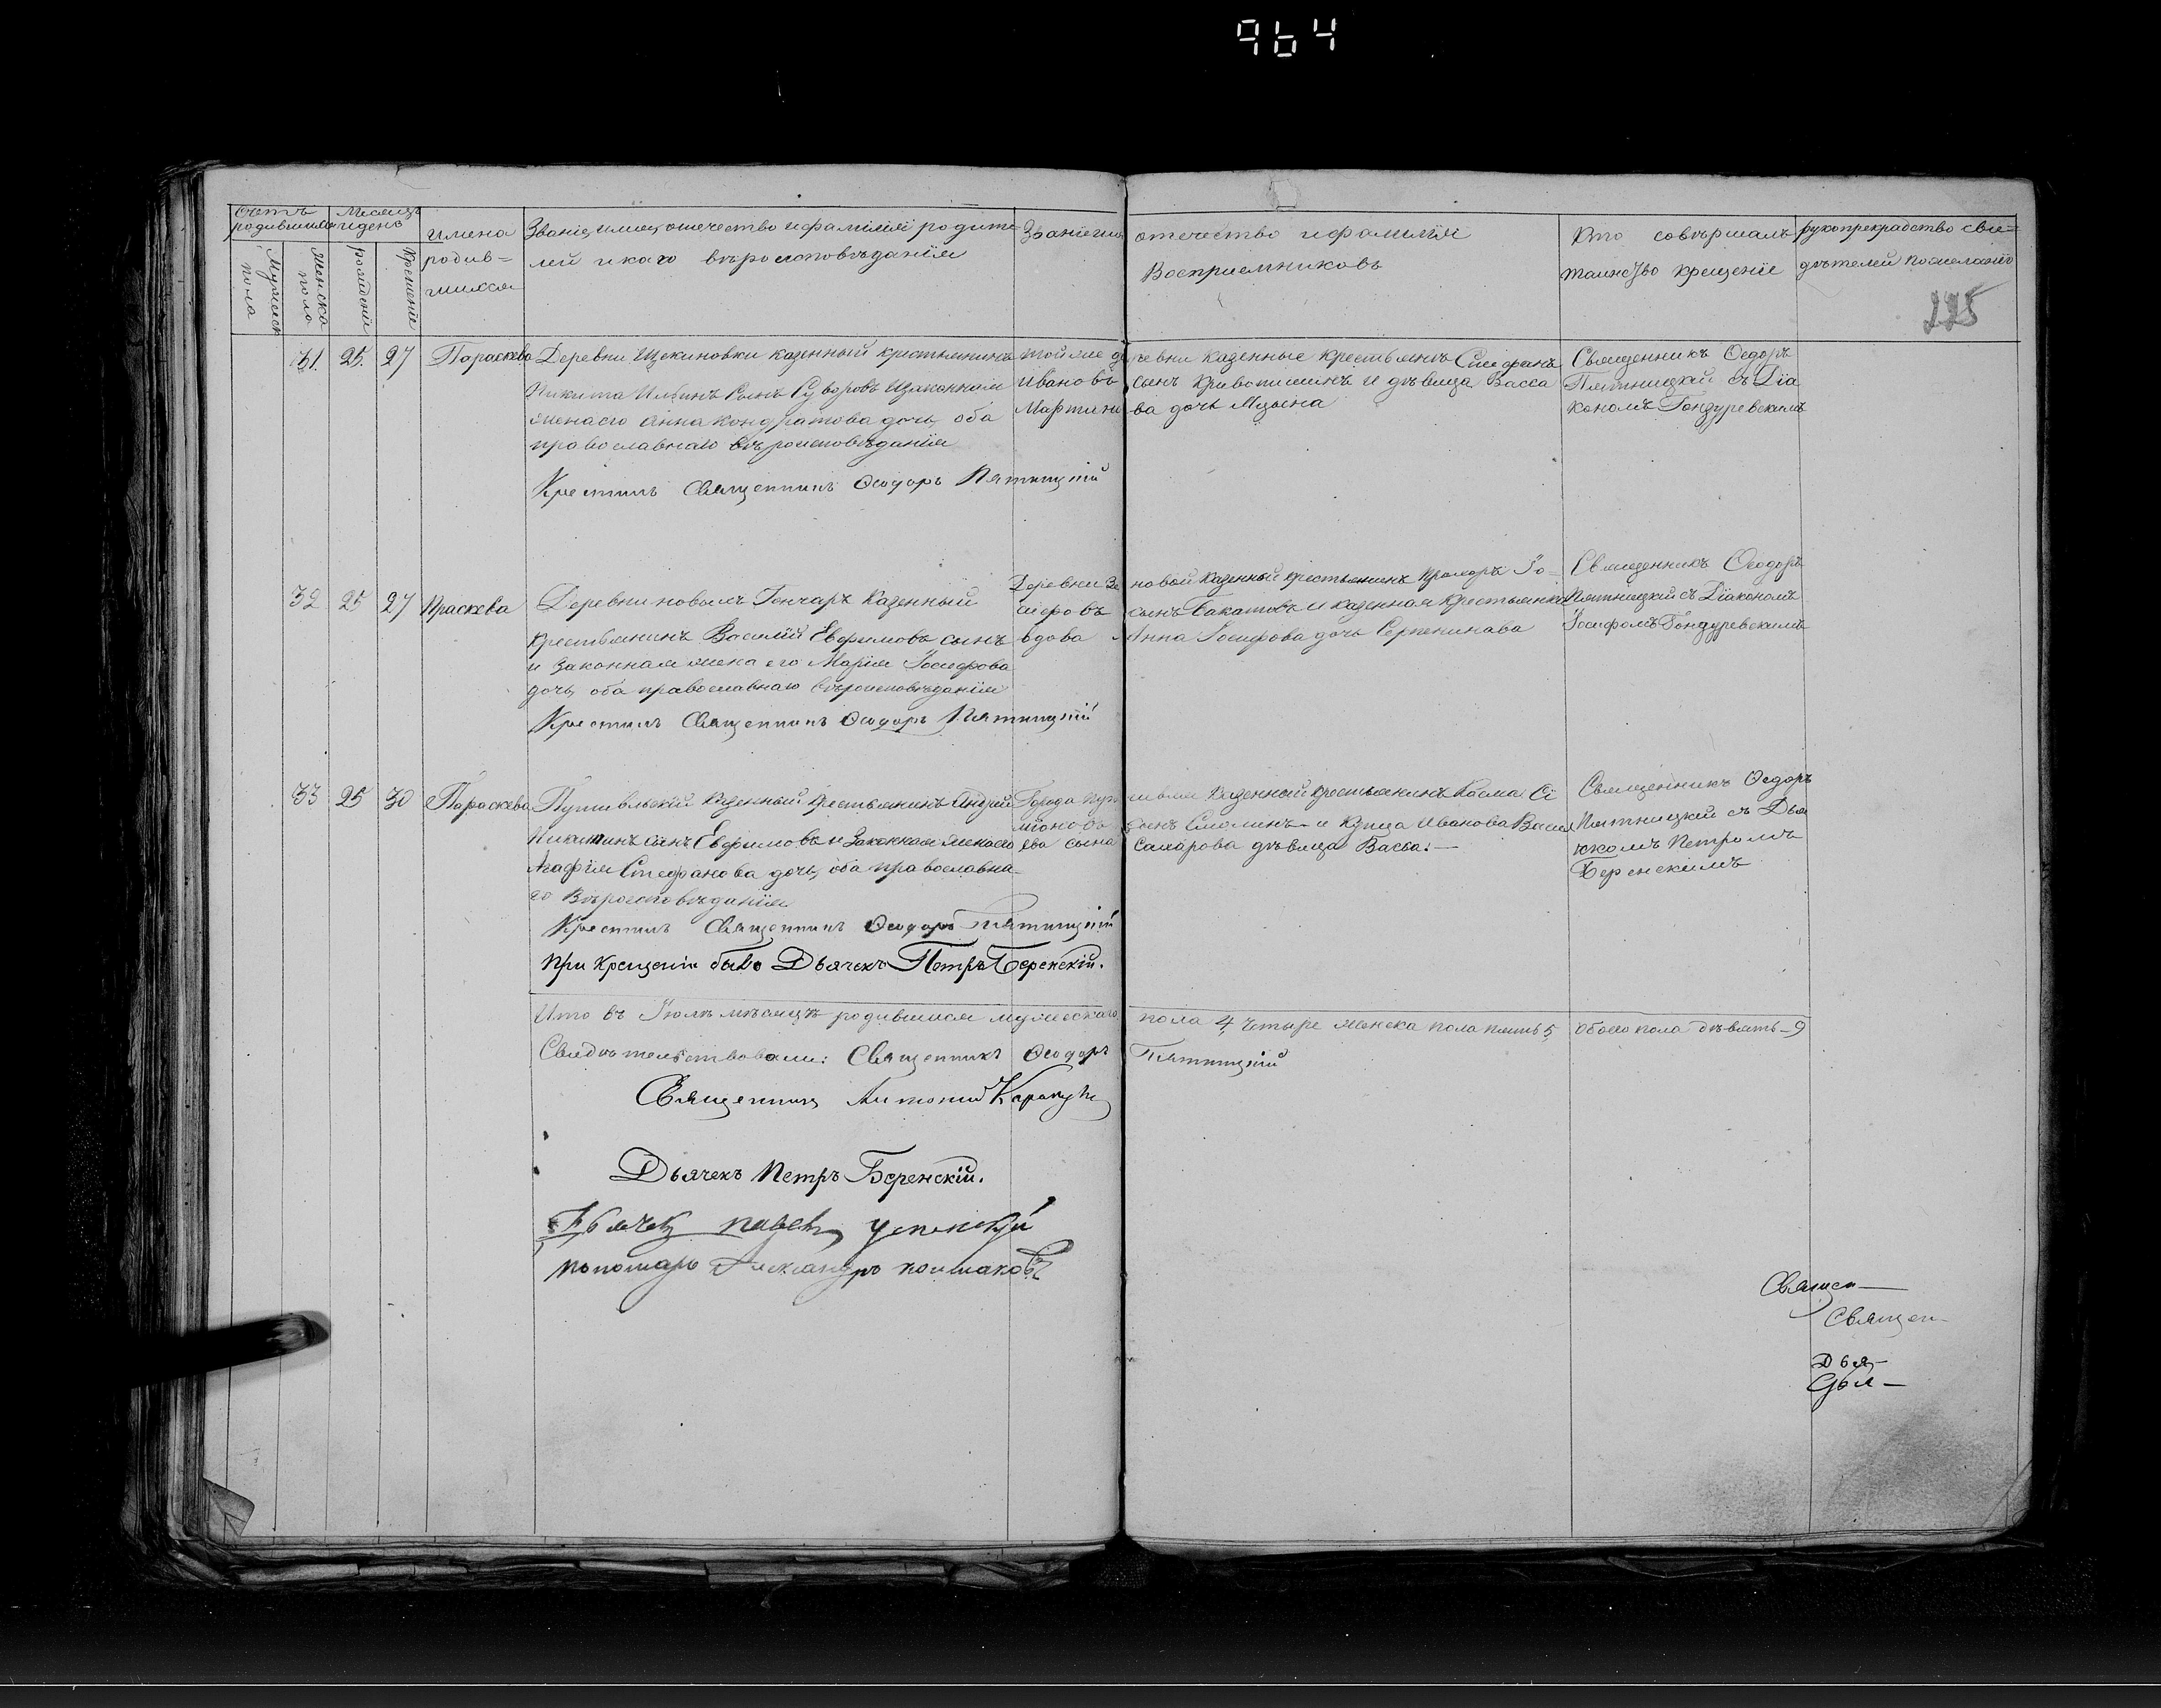 964
Счетъ родившихся
Мужеск пола
Женска пола
Месяцъ и день
рождения
крещения
имена родив=
шихся
Званіе, имя, отечество и фамилія родите
лей и какого вѣроисповѣданія
Званіе имя отечество и фамилія
Восприемниковъ
Кто совѣршалъ
таинство крещеніе
рукоприкладство сви=
дѣтелей по желанію
225
31. 25. 27 Параскева
Деревни Щекиновки казенный крестьянинъ
Никита Ильинъ сынъ Суворовъ и законная
жена его Анна Кондратова дочь, оба
православнаго вѣроисповѣданія
Крестилъ Священникъ Ѳеодоръ Пятницкій
той же деревни казенные крестьянъ Стефанъ
Ивановъ сынъ Кривопишинъ и дѣвица Васса
Мартинова дочь Мцына
Священникъ Ѳедоръ
Пятницкій съ Діа
кономъ Гондуревскимъ
32 25 27 Праскева
Деревни новыхъ Гончаръ Казенный
крестьянинъ Василій Евфимовъ сынъ
и законная жена его Марія Іосифова
дочь, оба православнаго вѣроисповѣданія
Крестилъ Священникъ Ѳеодоръ Пятницкій
Деревни Зе новой казенный крестьянинъ Прохоръ Іо=
сифовъ сынъ Бакатовъ и казенная крестьянка
вдова Анна Іосифова дочь Серпенинава
Священникъ Ѳеодоръ
Пятницкій съ Діакономъ
Іосифомъ Гондуревскимъ
33 25 30 Параскева
Путивльскій казенный крестьянинъ Андрей
Никитинъ сынъ Евфимовъ и законная жена его
Агафія Стефанова дочь, оба православна=
го Вѣроисповѣданія
Крестилъ Священникъ Ѳеодоръ Пятницкій
При крещеніи былъ Дьячекъ Петръ Беренскій.
Города Путивля Казенный крестьянинъ Косма Сі
мīоновъ сынъ Смолинъ и купца Иванова Васил
ева сына Самарова дѣвица Васса:—
Священникъ Ѳедоръ
Пятницкій съ Дья
чкомъ Петромъ
Беренскимъ
Итого въ Іюлѣ мѣсяцѣ родившихся мужескаго пола 4, четыре женска пола пять 5, обоего пола девять–9
Свидѣтельствовали: Священникъ Ѳеодоръ Пятницкій
Священникъ Антоній
Дьячекъ Петръ Беренскій.
Дьячекъ Павелъ Успенскій
пономарь Александръ Колмаковъ
Священ—
Священ—
Дья—